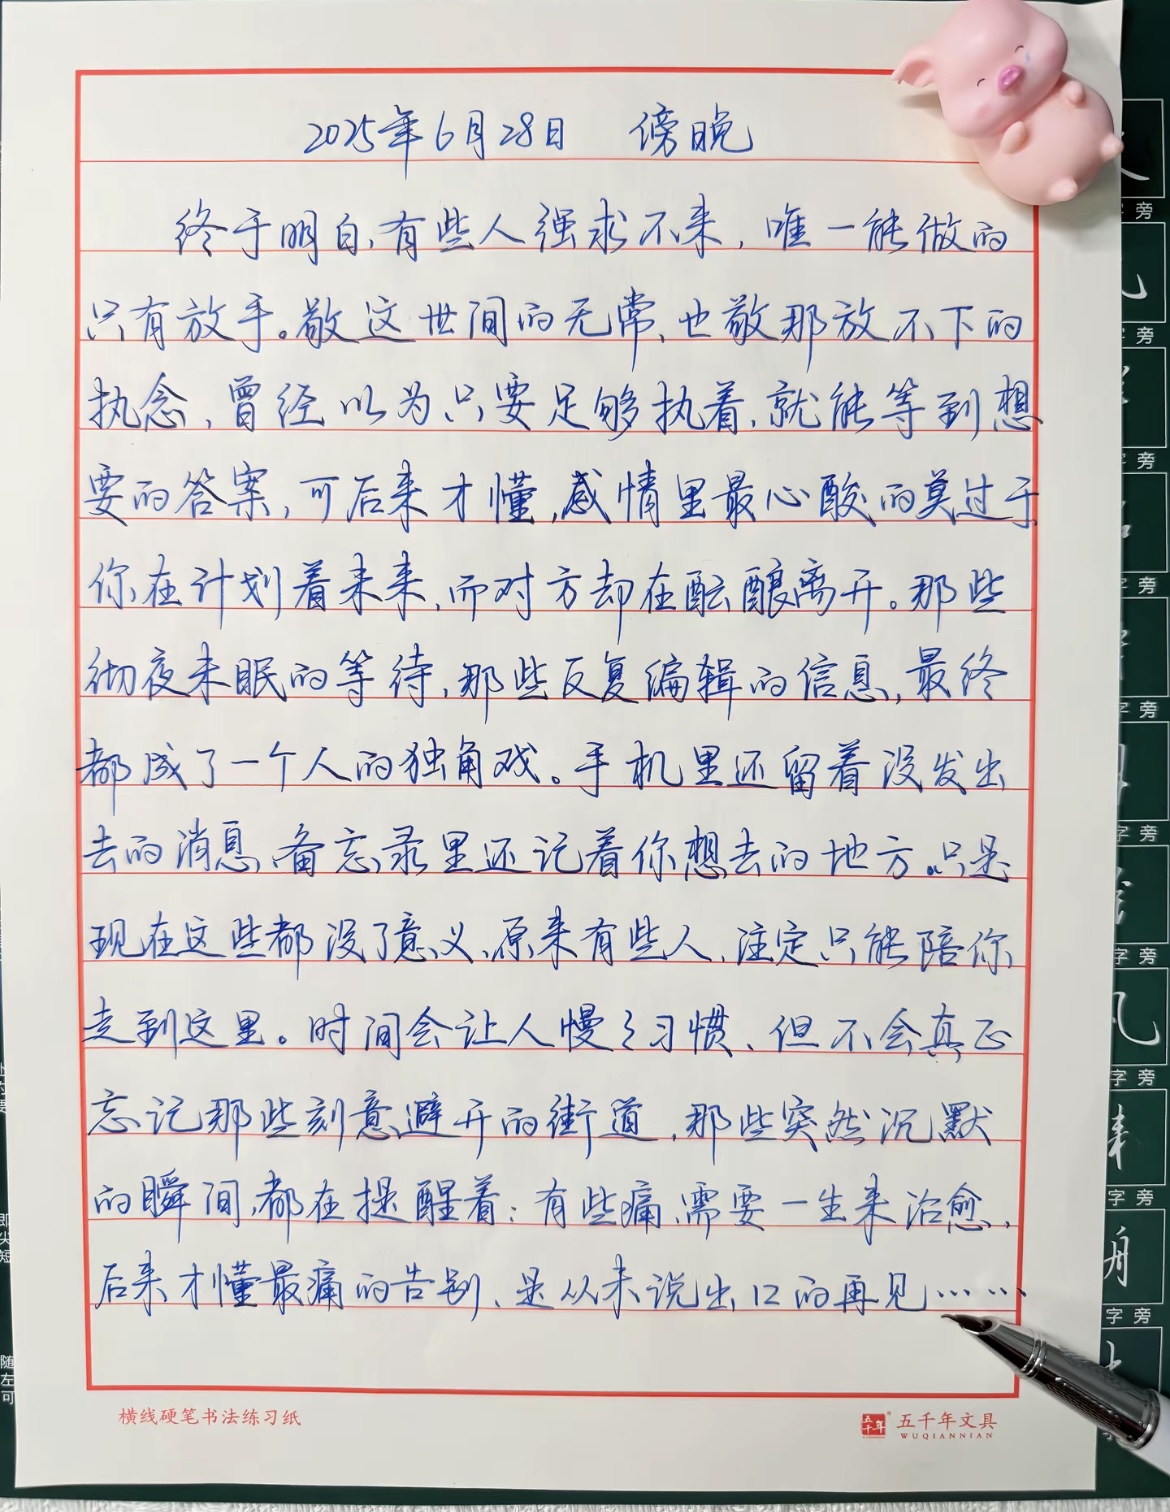 2025年6月28日 傍晚
终于明白,有些人强求不来,唯一能做的
只有放手。敬这世间的无常,也敬那放不下的
执念,曾经以为只要足够执着,就能等到想
要的答案,可后来才懂,感情里最心酸的莫过于
你在计划着未来,而对方却在酝酿离开。那些
彻夜未眠的等待,那些反复编辑的信息,最终
都成了一个人的独角戏。手机里还留着没发出
去的消息,备忘录里还记着你想去的地方。只是
现在这些都没了意义,原来有些人,注定只能陪你
走到这里。时间会让人慢々习惯,但不会真正
忘记那些刻意避开的街道,那些突然沉默
的瞬间,都在提醒着:有些痛,需要一生来治愈,
后来才懂最痛的告别,是从未说出口的再见……
横线硬笔书法练习纸
五千年 五千年文具
WUQIANNIAN
字旁
字旁
字旁
字旁
字旁
字旁
字旁
字旁
字旁
字旁
随左可